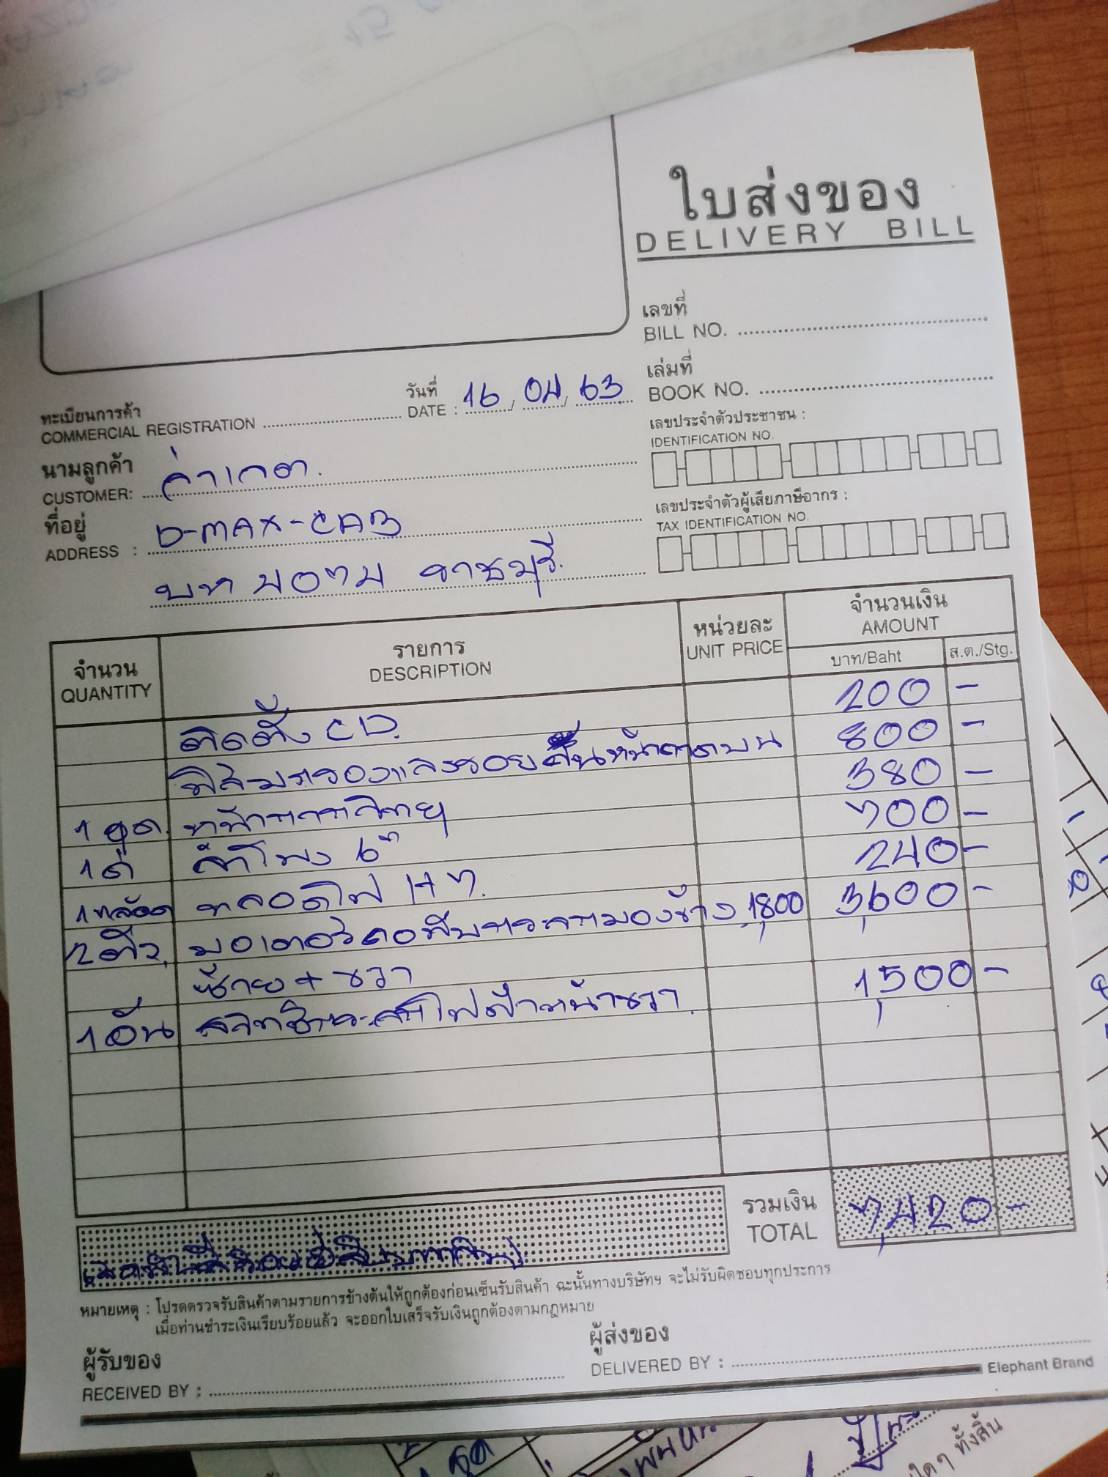 ใบส่งของ
DELIVERY BILL
เลขที่
BILL NO.
เล่มที่
BOOK NO.
ทะเบียนการค้า
COMMERCIAL REGISTRATION
วันที่
DATE : 16, 04, 63
เลขประจำตัวประชาชน :
IDENTIFICATION NO.
นามลูกค้า
CUSTOMER:
ที่อยู่ D-MAX-CAB
ADDRESS :
ราชบุรี.
เลขประจำตัวผู้เสียภาษีอากร :
TAX IDENTIFICATION NO.
จำนวน
QUANTITY
รายการ
DESCRIPTION
หน่วยละ
UNIT PRICE
จำนวนเงิน
AMOUNT
บาท/Baht ส.ต./Stg.
ติดตั้ง CD. 200 -
800 -
1 ชุด. 380 -
1 คู่ ลำโพง 6" 700 -
1 หลอด หลอดไฟ H7. 240 -
2 ตัว. มอเตอร์ 1,800 3,600 -
ซ้าย + ขวา
1 อัน 1,500 -
รวมเงิน
TOTAL 7,420 -
หมายเหตุ : โปรดตรวจรับสินค้าตามรายการข้างต้นให้ถูกต้องก่อนเซ็นรับสินค้า ฉะนั้นทางบริษัทฯ จะไม่รับผิดชอบทุกประการ
เมื่อท่านชำระเงินเรียบร้อยแล้ว จะออกใบเสร็จรับเงินถูกต้องตามกฎหมาย
ผู้รับของ
RECEIVED BY :
ผู้ส่งของ
DELIVERED BY :
Elephant Brand
ใดๆ ทั้งสิ้น